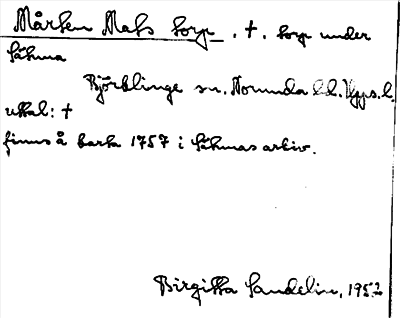 Mårten Mats torp, †. torp under
Sätuna
Björklinge sn. Norunda hd. Upps. l.
uttal: †
finns å karta 1757 i Sätunas arkiv.
Birgitta Sandelin, 1952